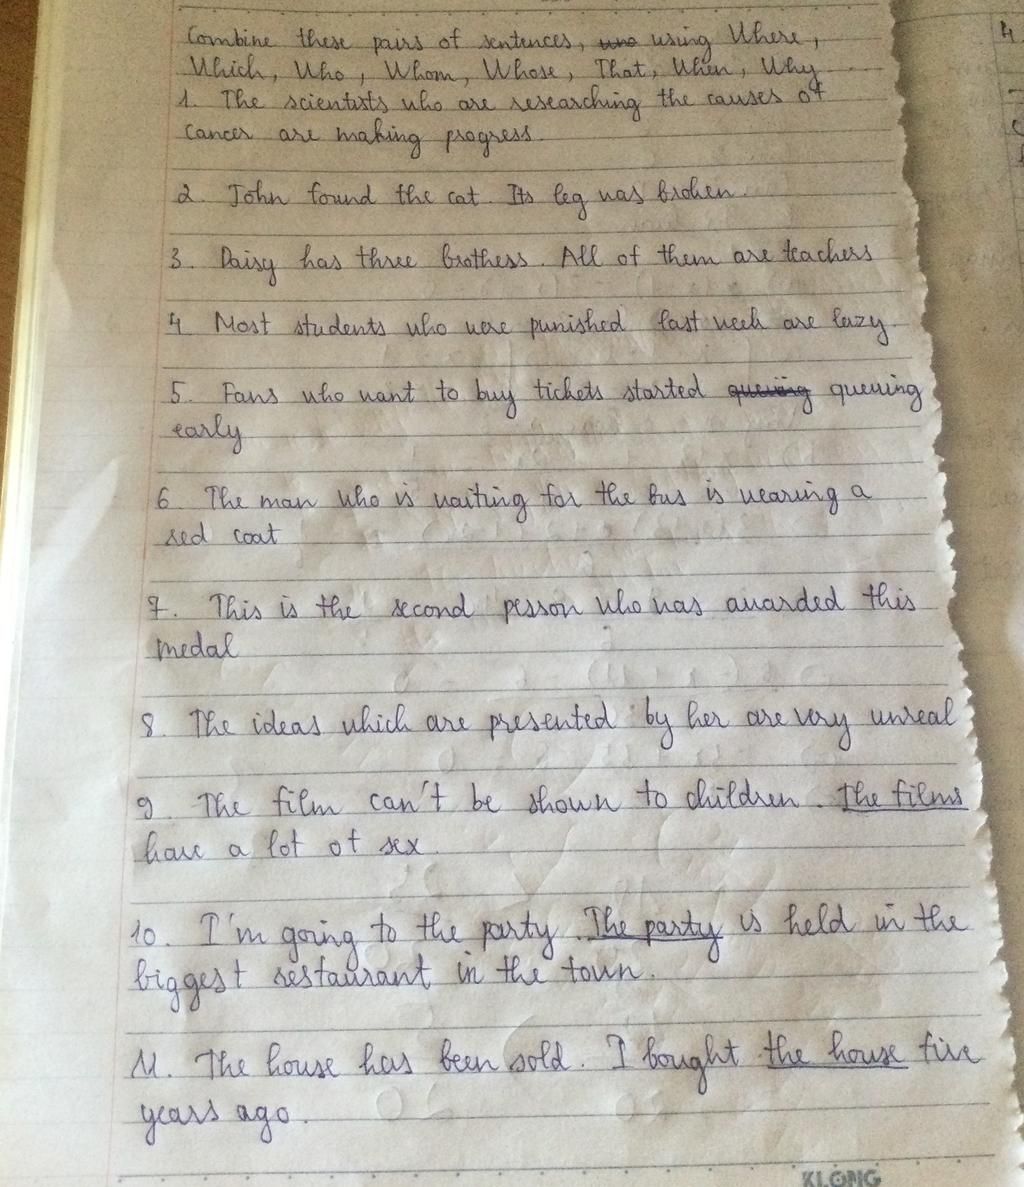 Combine these pairs of sentences, using Where,
Which, Who, Whom, Whose, That, When, Why
1. The scientists who are researching the causes of
cancer are making progress.
2. John found the cat. Its leg was broken.
3. Daisy has three brothers. All of them are teachers
4 Most students who were punished last week are lazy.
5. Fans who want to buy tickets started queuing queuing
early
6 The man who is waiting for the bus is wearing a
red coat
7. This is the second person who was awarded this
medal
8. The ideas which are presented by her are very unreal
9 The film can't be shown to children. The films
have a lot of sex.
10. I'm going to the party. The party is held in the
biggest restaurant in the town.
11. The house has been sold. I bought the house five
years ago.
KLONG